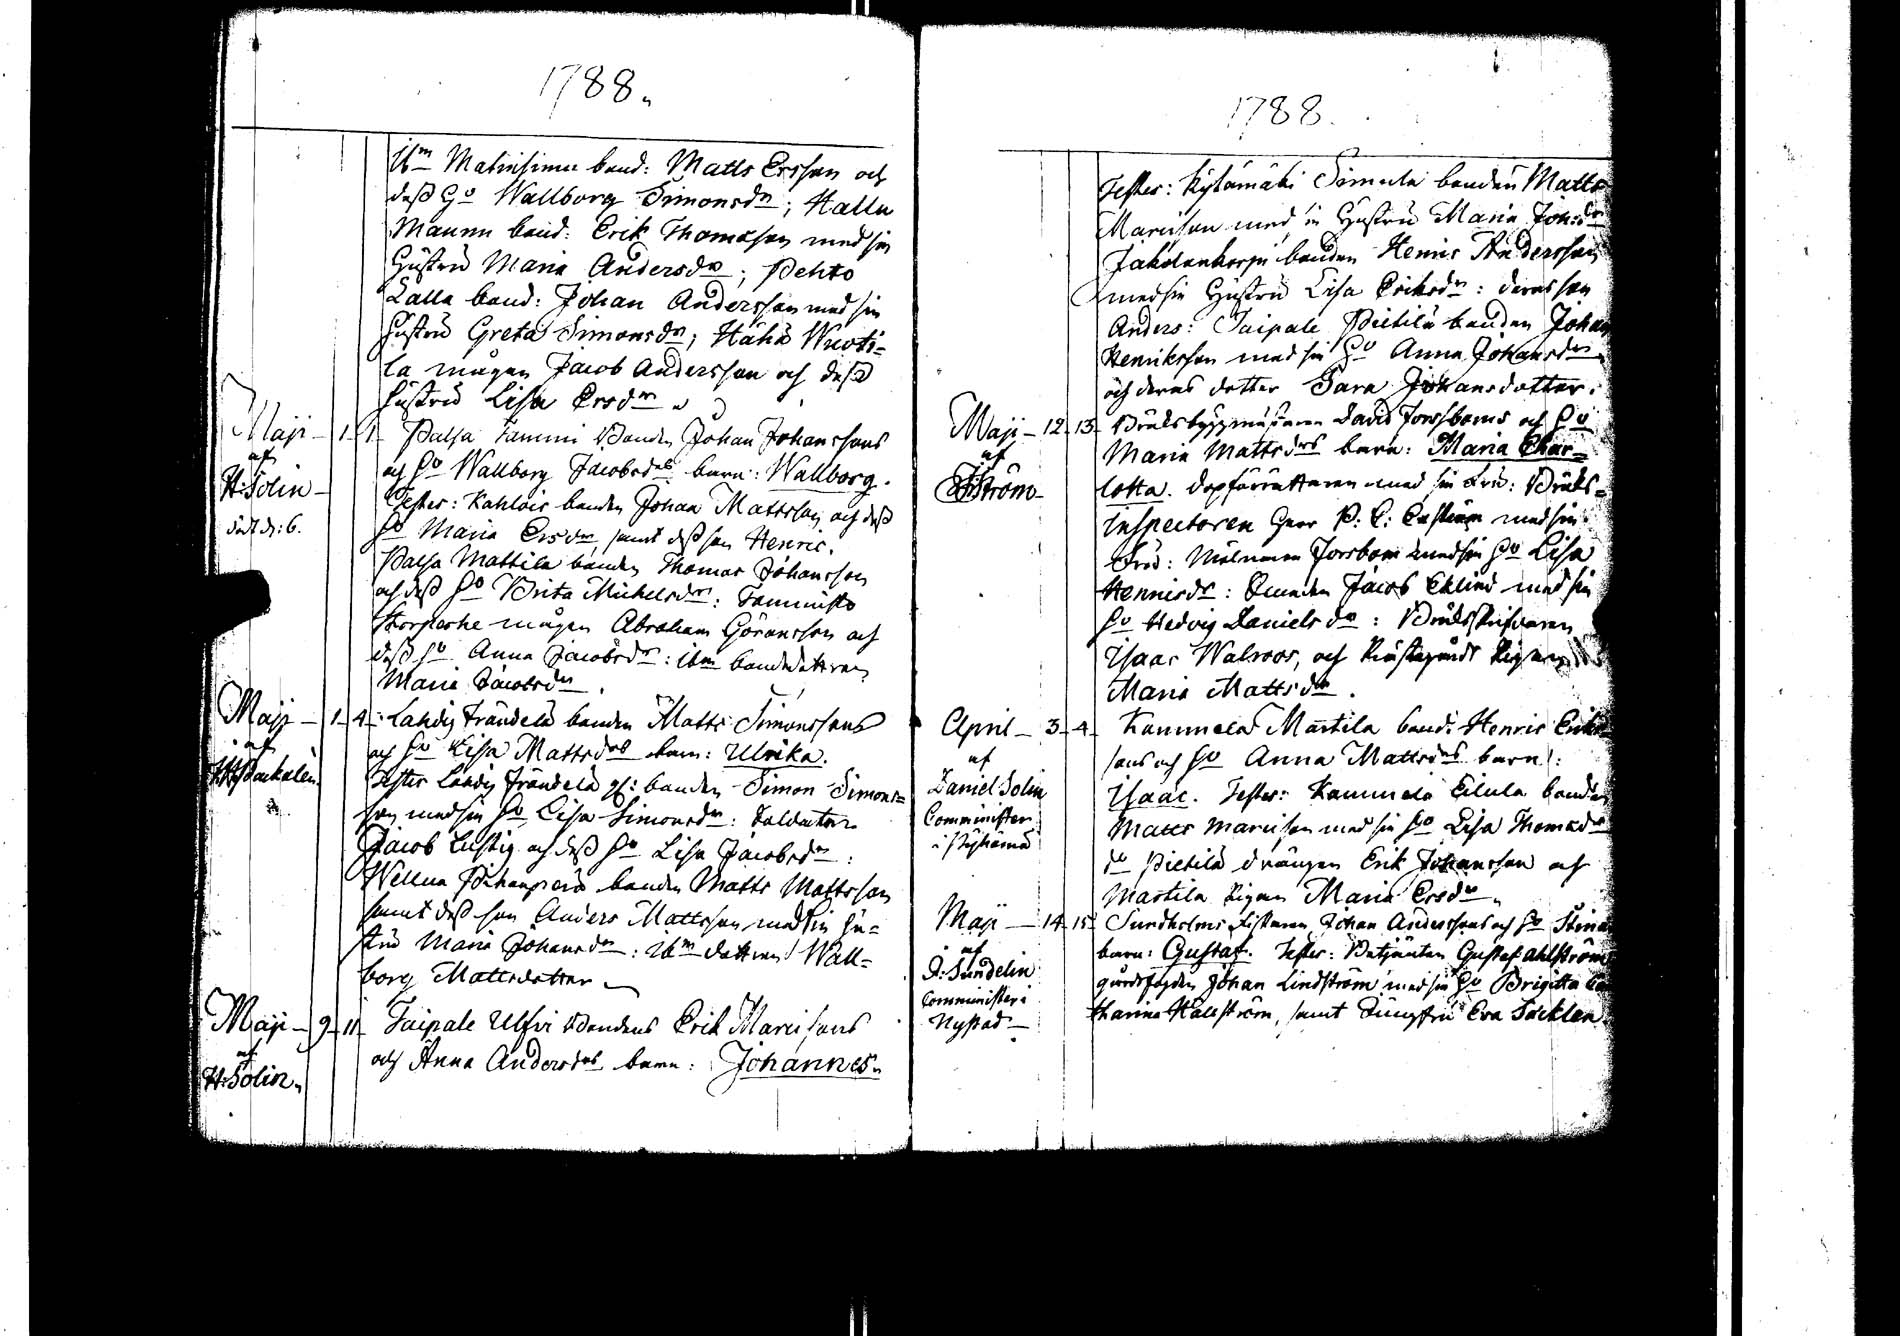 1788.
Ib:m Matinsimu band: Matts Ersson och
dess H:u Wallborg Simonsd:r; Halla
Maunu band: Erik Thomasson med sin
Hustru Maria Andersd:r; Pehto
Lalla band: Johan Andersson med sin
hustru Greta Simonsd:r; Hähä Wuoti=
la mågen Jacob Andersson och dess
hustru Lisa Ersd:r
Maji – 1 – 1 – Palsa Tammi Bonden Johan Johanssons
af
och H:u Wallborg Jacobsd:rs barn: Wallborg.
H: Solin –
Testes: Kahlois bonden Johan Mattsson och dess
död d: 6.
H:u Maria Ersd:r, samt dess son Henric.
Palsa Mattila bonden Thomas Johansson
och dess H:u Brita Michelsd:r: Tammisto
mågen Abraham Göransson och
dess H:u Anna Jacobsd:r: ib:m bondedottren
Maria Jacobsd:r.
Maji – 1 – 4 – Lahdis Frändelä bonden Matts Simonssons
af
och H:u Lisa Mattsd:rs barn: Ulrika.
Testes Lahdis Frändelä bonden Simon Simons=
son med sin H:u Lisa Simonsd:r: Soldaten
Jacob Lustig och dess H:u Lisa Jacobsd:r:
Wellua bonden Matts Mattsson
samt dess son Anders Mattsson med sin hu=
stru Maria Johansd:r: ib:m dottren Wall=
borg Mattsdotter
Maji – 9 – 11 – Taipale Ulfvi Bondens Erik Marcisons
af
och Anna Andersd:rs barn: Johannes.
H: Solin.
1788.
Testes: Kylämäki Simula bonden Matts
Marcison med sin Hustru Maria Johsd:r
bonden Henric Andersson
med sin Hustru Lisa Eriksd:r: deras son
Anders: Taipale Pietilä bonden Johan
Henriksson med sin H:u Anna Johansd:r
och deras dotter Sara Johansdotter.
Maji – 12 – 13 – Bruksbyggmästaren David Forssboms och H:u
af
Maria Mattsd:rs barn: Maria Char=
ström –
lotta. Dopförrättaren med sin Fru: Bruks=
inspectoren Herr P: C: med sin
Fru: Forsbom med sin H:u Lisa
Henricsd:r: Jacob Eklund med sin
H:u Hedvig Danielsd:r: Bruksskrifvaren
Isaac Walroos, och Pigan
Maria Mattsd:r.
April – 3 – 4 – Kammela Martila band: Henric Eriks
af
sons och H:u Anna Mattsd:rs barn:
Daniel Solin
Isaac. Testes: Kammela Eilula bonden
Comminister
Matts Marcison med sin H:u Lisa Thomasd:r
i Pyhämä
d:o Pietilä drängen Erik Johansson och
Martila Pigan Maria Ersd:r.
Maji – 14 – 15 Sundholms Fiskaren Johan Anderssons och H:u Stina
af
barn: Gustaf. Testes: Betjenten Gustaf Ahlström
A: Sundelin
gårdsfogden Johan Lindström med sin H:u Brigitta Ca
Comminister i
tharina Hällström, samt Jungfru Eva Säcklen.
Nystad –